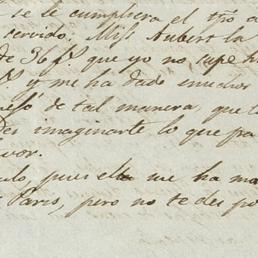 se le cumpliera el tpo a
servido; Miss Aubert la
de 36 f.s que yo no supe h
y me ha dado muchos
de tal manera, que t
imaginarte lo que pa
vor.
pues ella me ha ma
Paris, pero no te des po